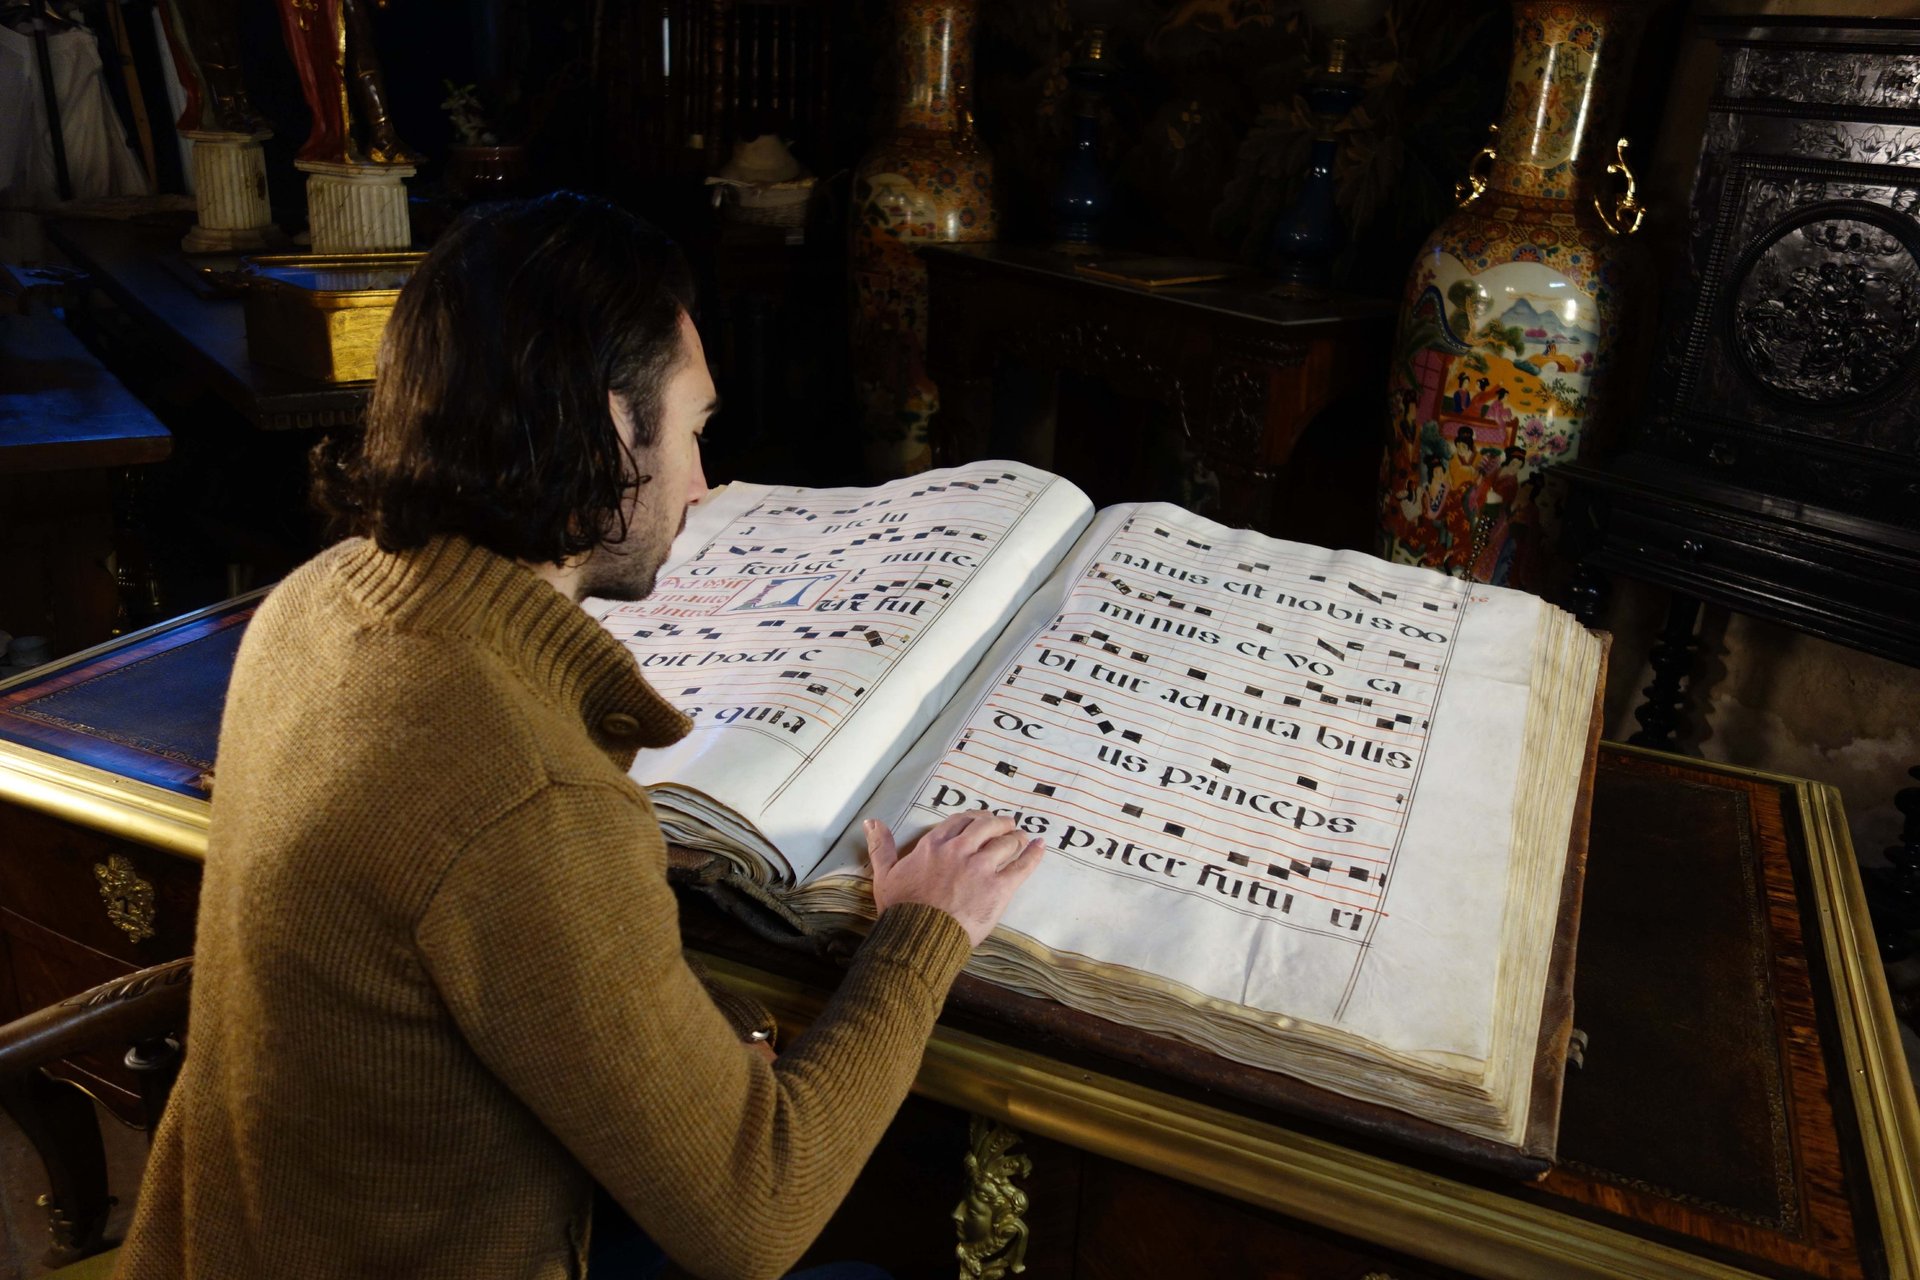 nte lu
ci ferũ ge nuite.
Lux ful
bit hodi e
s quia
natus est nobis do
minus et vo ca
bi tur admira bilis
de us princeps
pacis pater futu ri